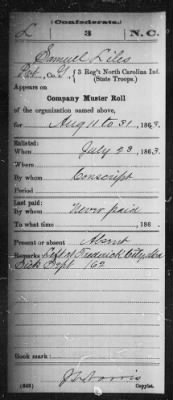 (Confederate.)
L 3 N.C.
Samuel Liles
Pvt, Co. G, 3 Reg't North Carolina Inf.
(State Troops.)
Appears on
Company Muster Roll
of the organization named above,
for Aug 11 to 31, 1863.
Enlisted:
When July 23, 1863.
Where
By whom Conscript
Period
Last paid:
By whom Never paid
To what time , 186 .
Present or absent Absent
Remarks Left at Frederick City Md
Sick Sept 1862
Book mark:
Copyist.